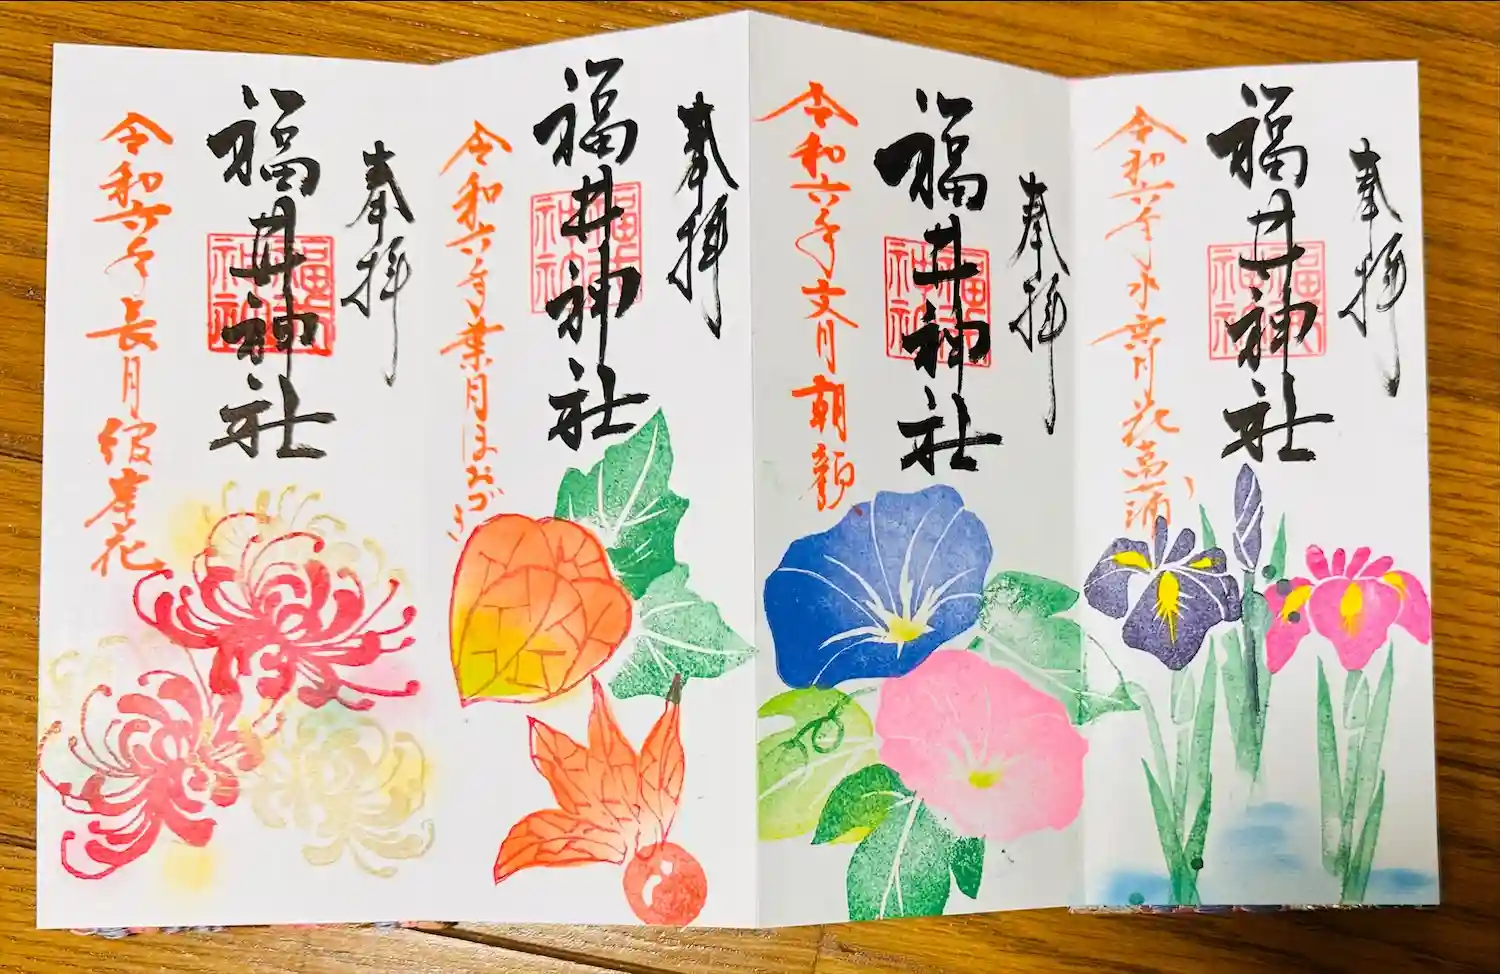 奉拝
福井神社
福井
神社
令和六年水無月花菖蒲
奉拝
福井神社
福井
神社
令和六年文月朝顔
奉拝
福井神社
福井
神社
令和六年葉月ほおづき
奉拝
福井神社
福井
神社
令和六年長月彼岸花